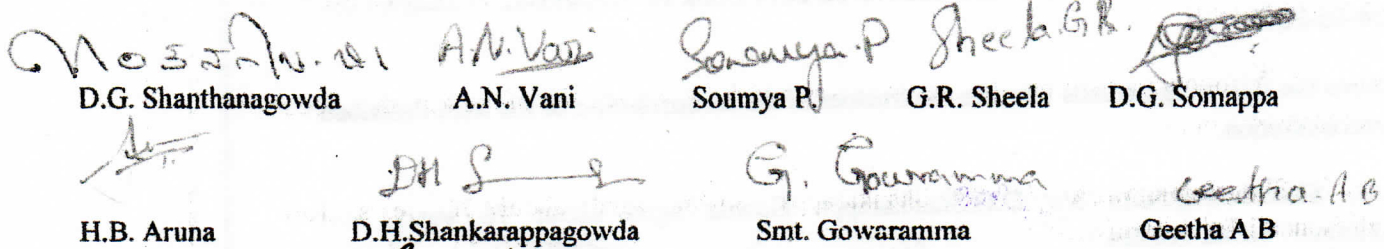 A.N. Vani Soumya.P Sheela.G.R.
D.G. Shanthanagowda A.N. Vani Soumya P. G.R. Sheela D.G. Somappa
DH G. Gowramma Geetha A B
H.B. Aruna D.H.Shankarappagowda Smt. Gowaramma Geetha A B